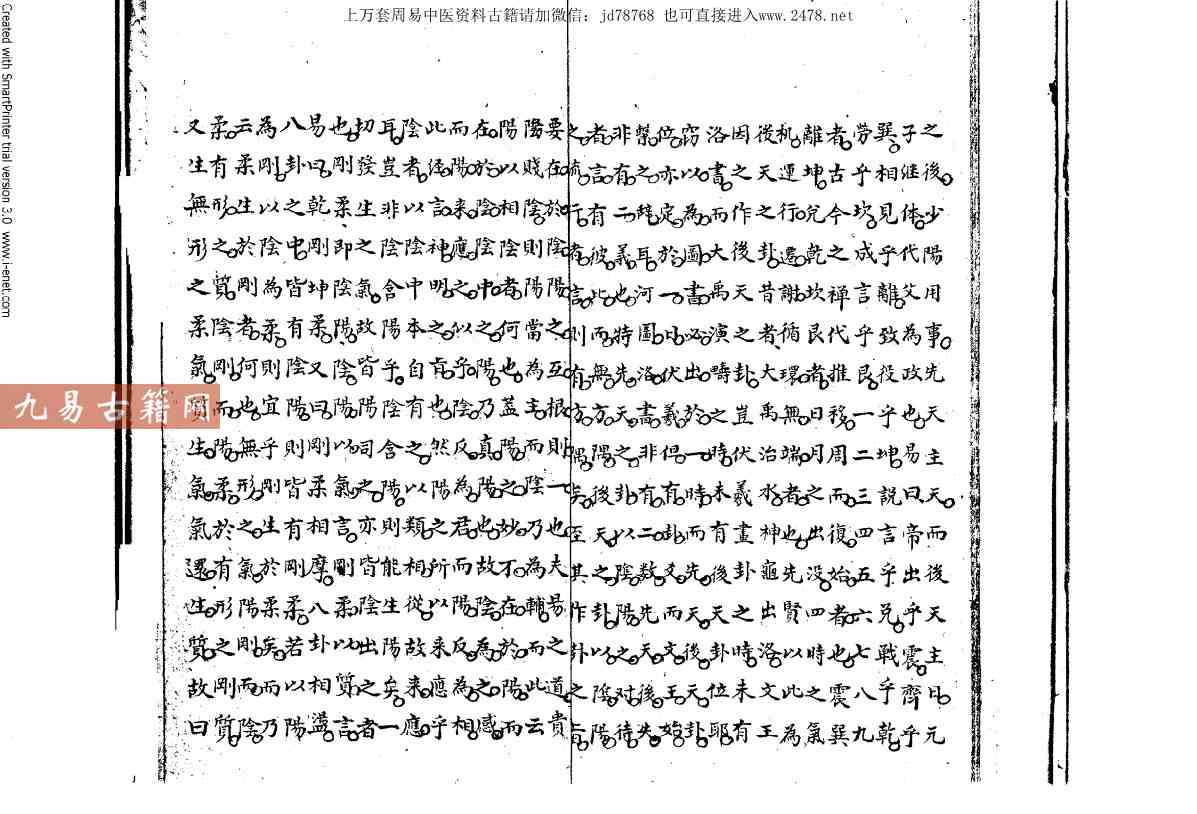 上万套周易中医资料古籍请加微信：jd78768 也可直接进入www.2478.net
之後少陽用事先天主天而後天主日元
子继体代艾為政也易曰帝出乎震齊乎
巽相見乎離致役乎坤説言乎兑戰乎乾
勞乎坎成言乎艮一二三四五六七八九
者古今之禅代推移周而復始者也震巽
離坤兑乾坎艮者日月之出没四時之氣
机運行遷謝循環無端者也先賢以此為
後天之卦昔者大禹治水神龜出洛文王
因之作後天之卦豈伏羲畫卦之時未有
洛書而大禹演疇之時未有後天卦位耶
窃以為圖書必出於一時而先天後天卦
位亦定於一日伏羲但有卦爻而文王始
繫之辞耳河圖洛書非有二數先天後失
非有二義也特先天之卦以陰陽之对待
者言有彼此而無方隅後天之卦以陰陽
之流行者言則有方隅矣至其作卦之旨
要在於陰陽之互根則一也夫昜之道貴
陽賤陰則陽當為主而陰乃為輔而此云
陽以相陰者何也蓋陽之妙不在於陽而
在於陰陰中之陽乃真陽也故陰為之感
而陽来應之似乎陰反為君而陽反為相
此經言神明之肯也然陽之所以来應乎
陰者以陰中本自有之以類相從故来應
耳豈非陰含陽乎陰含陽則能生陽矣一
切發生之氣故皆陽司之亦皆陰出之者
也剛柔即陰陽陰陽以氣言剛柔以質言
易曰乾剛坤柔又曰剛柔相摩八卦相盪
八卦之中皆有陰陽則皆有剛柔若以陽
為剛以陰為柔則宜乎剛生於柔矣而乃
云柔生於剛者何也無形之氣陽剛而陰
柔有形之質陰剛而陽柔於有形之剛質
又生無形之柔氣質生氣氣還生質故曰
九易古籍网
Created with SmartPrinter trial version 3.0 www.i-enet.com